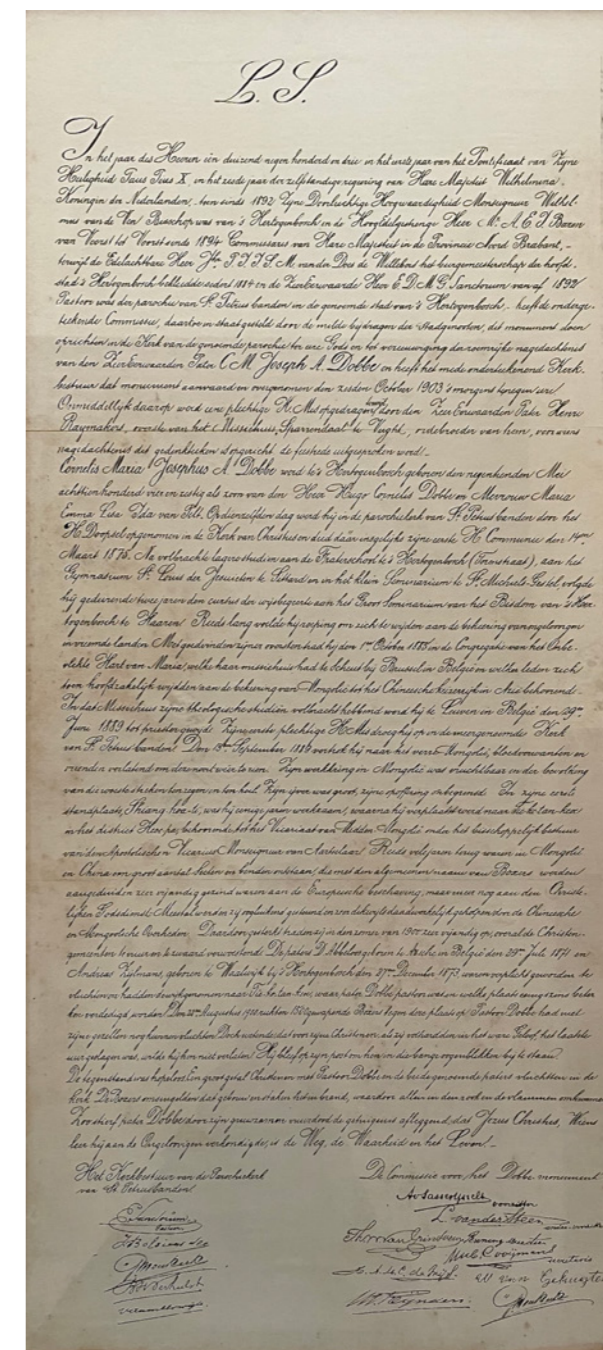 L. S.
In het jaar des Heeren een duizend negen honderd en drie in het eerste jaar van het Pontificaat van Zijne
Heiligheid Paus Pius X, en het zesde jaar der zelfstandige regeering van Hare Majesteit Wilhelmina,
Koningin der Nederlanden, toen sinds 1892 Zijne Doorluchtige Hoogwaardigheid Monseigneur Wilhel-
mus van de Ven Bisschop was van 's Hertogenbosch en de HoogEdelgestrenge Heer Mr. A. E. J. Baron
van Voorst tot Voorst sinds 1894 Commissaris van Hare Majesteit in de Provincie Noord Brabant, -
terwijl de Edelachtbare Heer Jhr P. J. J. S. M. van der Does de Willebois het burgemeesterschap der hoofd-
stad 's Hertogenbosch bekleedde sedert 1884 en de ZeerEerwaarde Heer E. D. M. G. Sanctorum vanaf 1892
Pastoor was der parochie van St. Petrus banden in de genoemde stad van 's Hertogenbosch, - heeft de onderge-
teekende Commissie, daartoe in staat gesteld door de milde bijdragen der stadgenooten, dit monument doen
oprichten in de Kerk van de genoemde parochie ter eere Gods en tot vereeuwiging der roemrijke nagedachtenis
van den ZeerEerwaarden Pater C. M. Joseph A. Dobbe en heeft het mede onderteekenend Kerk-
bestuur dat monument aanvaard en overgenomen den zesden October 1903 's morgens tegen uur
Onmiddellijk daarop werd eene plechtige H. Mis opgedragen door den Zeer Eerwaarden Pater Henri
Raymakers, overste van het Missiehuis, Sparrendaal te Vught, ordebroeder van hem, voor wiens
nagedachtenis dit gedenkteeken is opgericht de feestrede uitgesproken werd. -
Cornelis Maria Josephus A Dobbe werd te 's Hertogenbosch geboren den negentienden Mei
achttienhonderd vier en zestig als zoon van den Heer Hugo Cornelis Dobbe en Mevrouw Maria
Emma Lisa Ida van Pelt. Op dienzelfden dag werd hij in de parochiekerk van St. Petrus banden door het
H. Doopsel opgenomen in de Kerk van Christus en deed daar insgelijks zijne eerste H. Communie den 14den
Maart 1875. Na volbrachte lagere studien aan de Fraterschool te 's Hertogenbosch, aan het
Gymnasium St. Louis der Jesuieten te Sittard en in het klein Seminarium te St. Michiels-Gestel volgde
hij gedurende twee jaren den cursus der wijsbegeerte aan het Groot Seminarium van het Bisdom van 's Her-
togenbosch te Haaren. Reeds lang voelde hij roeping om zich te wijden aan de bekeering van ongeloovigen
in vreemde landen. Met goedvinden zijner ouders trad hij den 1sten October 1885 in de Congregatie van het Onbe-
vlekte Hart van Maria, welke haar missiehuis had te Scheut bij Brussel in België en welker leden zich
toen hoofdzakelijk wijdden aan de bekeering van Mongolie tot het Chineesche keizerrijk in Azië behoorende.
In dat Missiehuis zijne theologische studiën volbracht hebbend werd hij te Leuven in België den 29sten
Juni 1889 tot priester gewijd. Zijne eerste plechtige H. Mis droeg hij op in de meergenoemde Kerk
van St. Petrus banden. Den September vertrok hij naar het verre Mongolie, bloedverwanten en
vrienden verlatend om der nooit weer te zien. Zijn werkkring in Mongolië was vruchtbaar en der bevolking
van die woeste streken ten zegen en ten heil. Zijn ijver was groot, zijne opoffering onbegrensd. In zijne eerste
standplaats, was hij eenige jaren werkzaam, waarna hij verplaatst werd naar
in het district behoorende tot het Vicariaat van Midden Mongolië onder het bisschoppelijk bestuur
van den Apostolischen Vicarius Monseigneur van Aertselaer. Reeds vele jaren terug waren in Mongolië
en China een groot aantal Secten en benden ontstaan, die met den algemeenen naam van Boxers worden
aangeduid en zeer vijandig gezind waren aan de Europeesche beschaving, maar meer nog aan den Christe-
lijken Godsdienst. Meestal werden zij oogluikend gesteund en zeer dikwijls daadwerkelijk geholpen door de Chineesche
en Mongoolsche Overheden. Daardoor gesterkt traden zij in den zomer van 1900 zeer vijandig op, overal de Christen-
gemeenten te vuur en te zwaard verwoestende. De paters D. Abbeloos geboren te Assche in België den 29sten Juli 1871 en
Andreas Zijlmans, geboren te Waalwijk bij 's Hertogenbosch den 27sten December 1873, waren verplicht geworden te
vluchten en hadden de wijk genomen naar waar pater Dobbe pastoor was en welke plaats eenigszins beter
kon verdedigd worden. Den Augustus 1900 rukten gewapende Boxers tegen deze plaats op. Pastoor Dobbe had met
zijne gezellen nog kunnen vluchten. Doch wetende dat voor zijne Christenen, als zij volhardden in het ware Geloof, het laatste
uur geslagen was, wilde hij hen niet verlaten! Hij bleef op zijn post om hen in die bange oogenblikken bij te staan.
De tegenstand was hopeloos. Een groot getal Christenen met Pastoor Dobbe en de beide genoemde paters vluchtten in de
kerk. De Boxers omsingelden dat gebouw en staken het in brand, waardoor allen in den rook en de vlammen omkwamen.
Zoo stierf pater Dobbe door zijn gruwzamen vuurdood de getuigenis afleggend, dat Jezus Christus, Wiens
leer hij aan de Ongeloovigen verkondigde, is de Weg, de Waarheid en het Leven! -
Het Kerkbestuur van de Parochiekerk
van St. Petrus banden.
De Commissie voor het Dobbe monument
voorzitter
L. van der Steen
E. Sanctorum
Pastoor